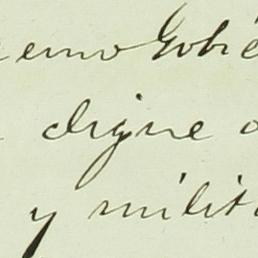 emo Gobie
digne
y milit